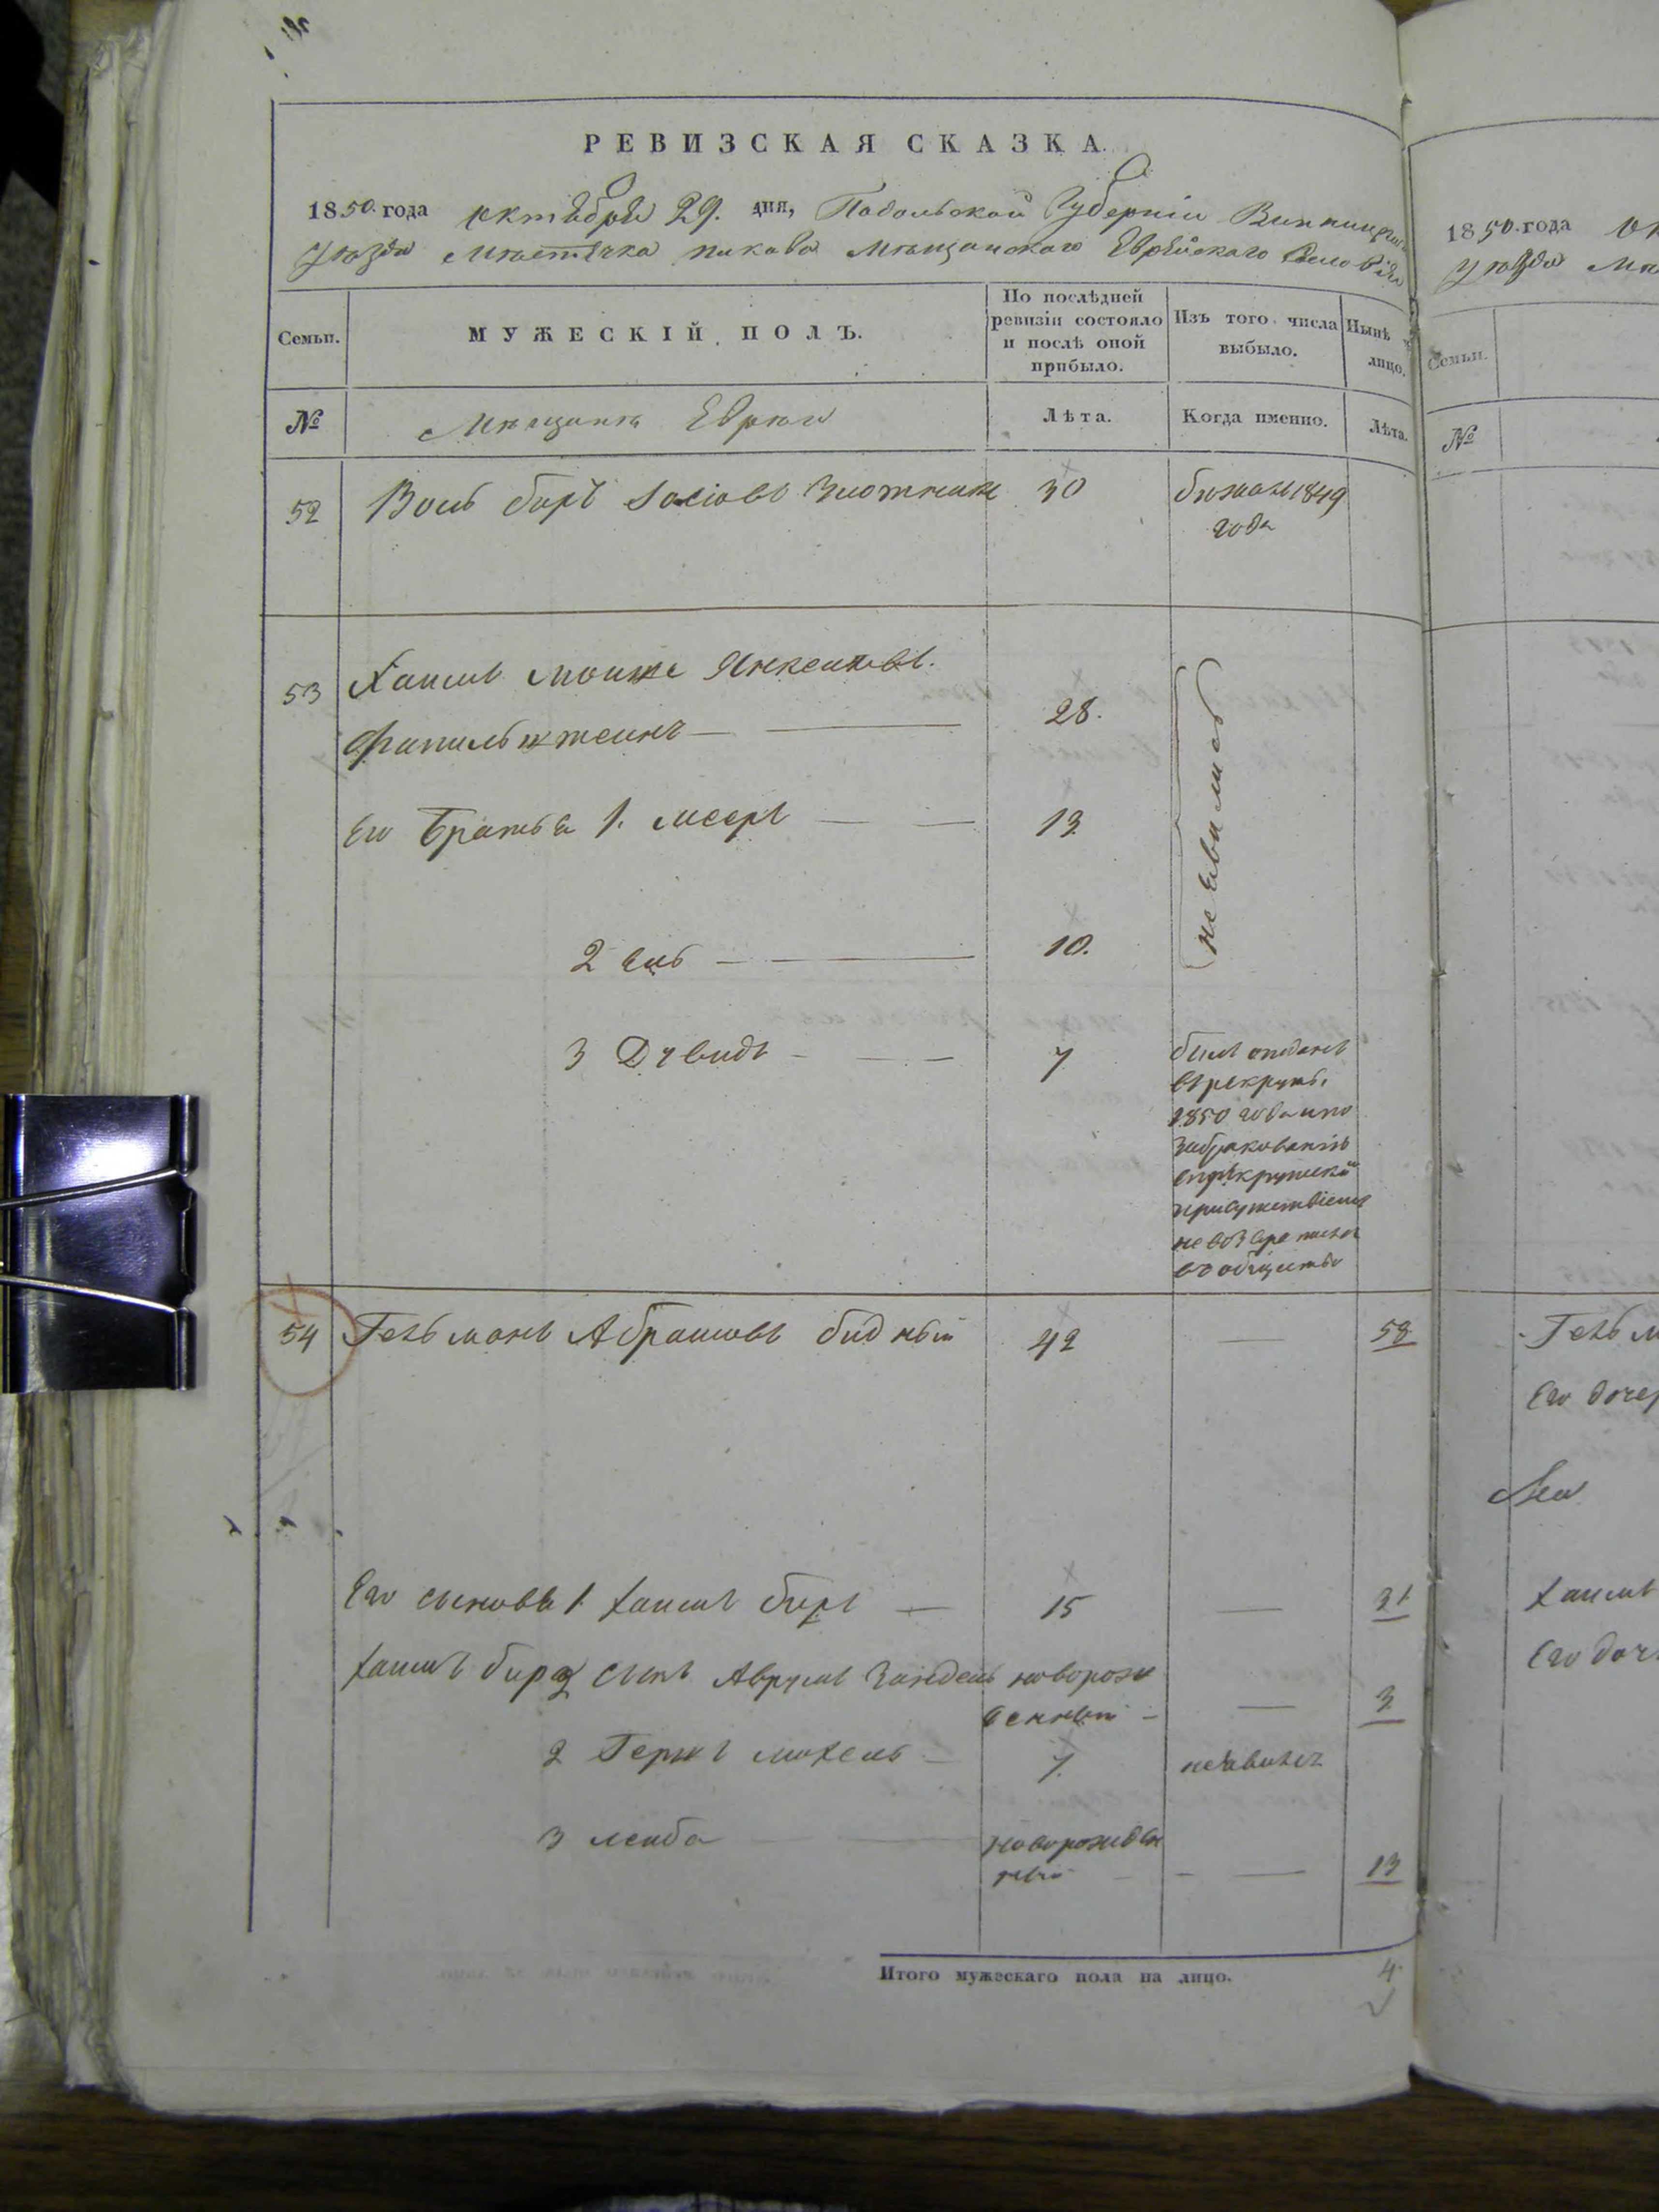 РЕВИЗСКАЯ СКАЗКА.
1850 года октября 29. дня, Подольской Губерніи Винницкаго
уѣзда мѣстечка Пикова мѣщанскаго Еврейскаго
Семьи.
МУЖЕСКІЙ ПОЛЪ.
По послѣдней ревизіи состояло и послѣ оной прибыло.
Изъ того числа выбыло.
Нынѣ на лицо.
№
Мѣщане Евреи
Лѣта.
Когда именно.
Лѣта.
52 30 бѣжалъ 1849
года
53 Хаимъ Мошке Янкелевъ
28.
Его Братья 1. Мееръ — — 13
не явились
2 — — 10.
3 Дувидъ - — — 7
былъ отданъ
въ рекруты
1850 года и по
забракованію
рекрутскимъ
присутствіемъ
не возвратился
въ общество
54 Гельманъ Абрамовъ бидный 42 — 58
Его сыновья 1. Хаимъ Беръ — 15 — 31
Хаимъ Бера сынъ Аврумъ Зандель новорож
денный — — 3
2 Гершъ Михель — 7. не явился
3 Лейба — — новорожден
ный — — — 13
Итого мужескаго пола на лицо. 4
1850 года
уѣзда
Семьи.
№
Гельм
Его дочер
Хаимъ
Его доч